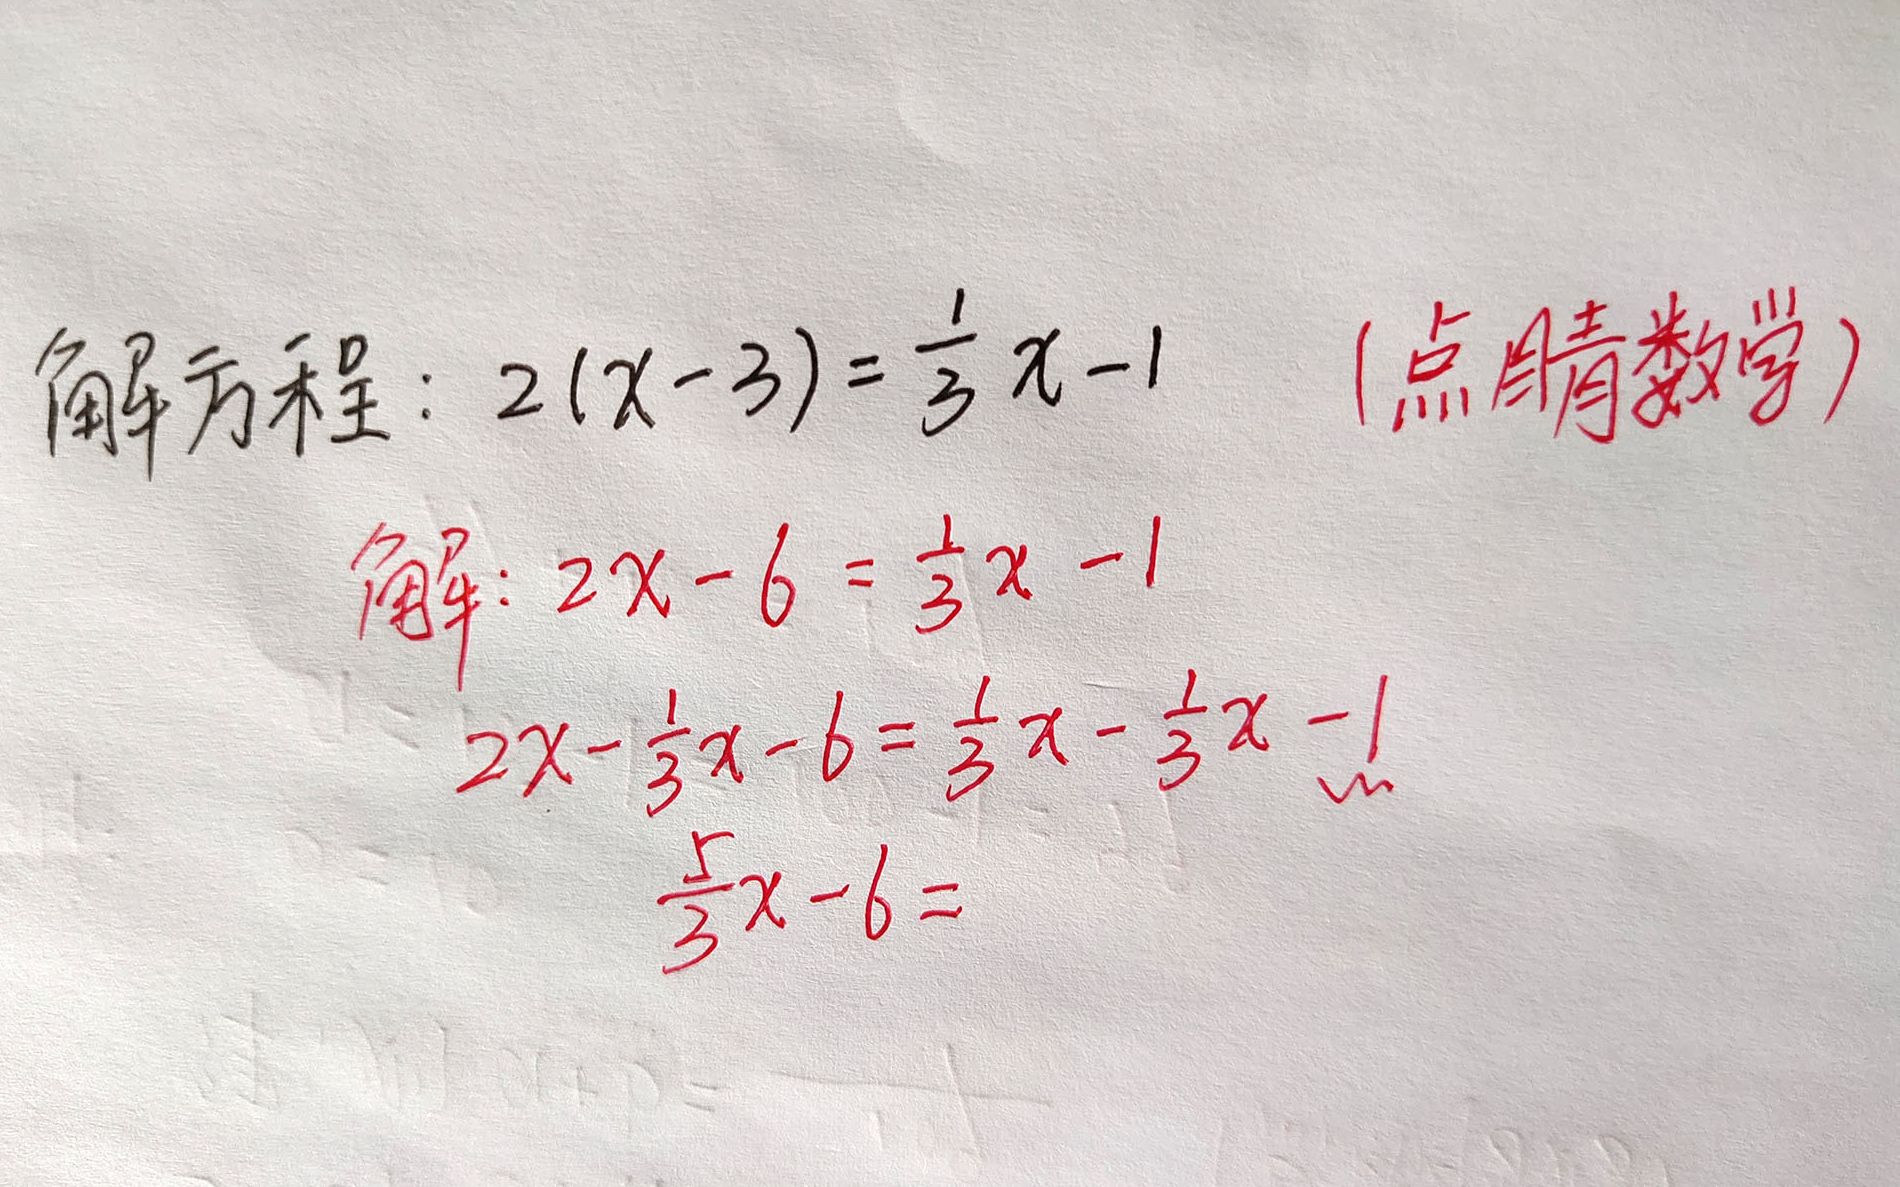 解方程：2(x-3)=1/3 x-1 （点睛数学）
解：2x-6=1/3 x-1
2x-1/3 x-6=1/3 x-1/3 x-1
5/3 x-6=